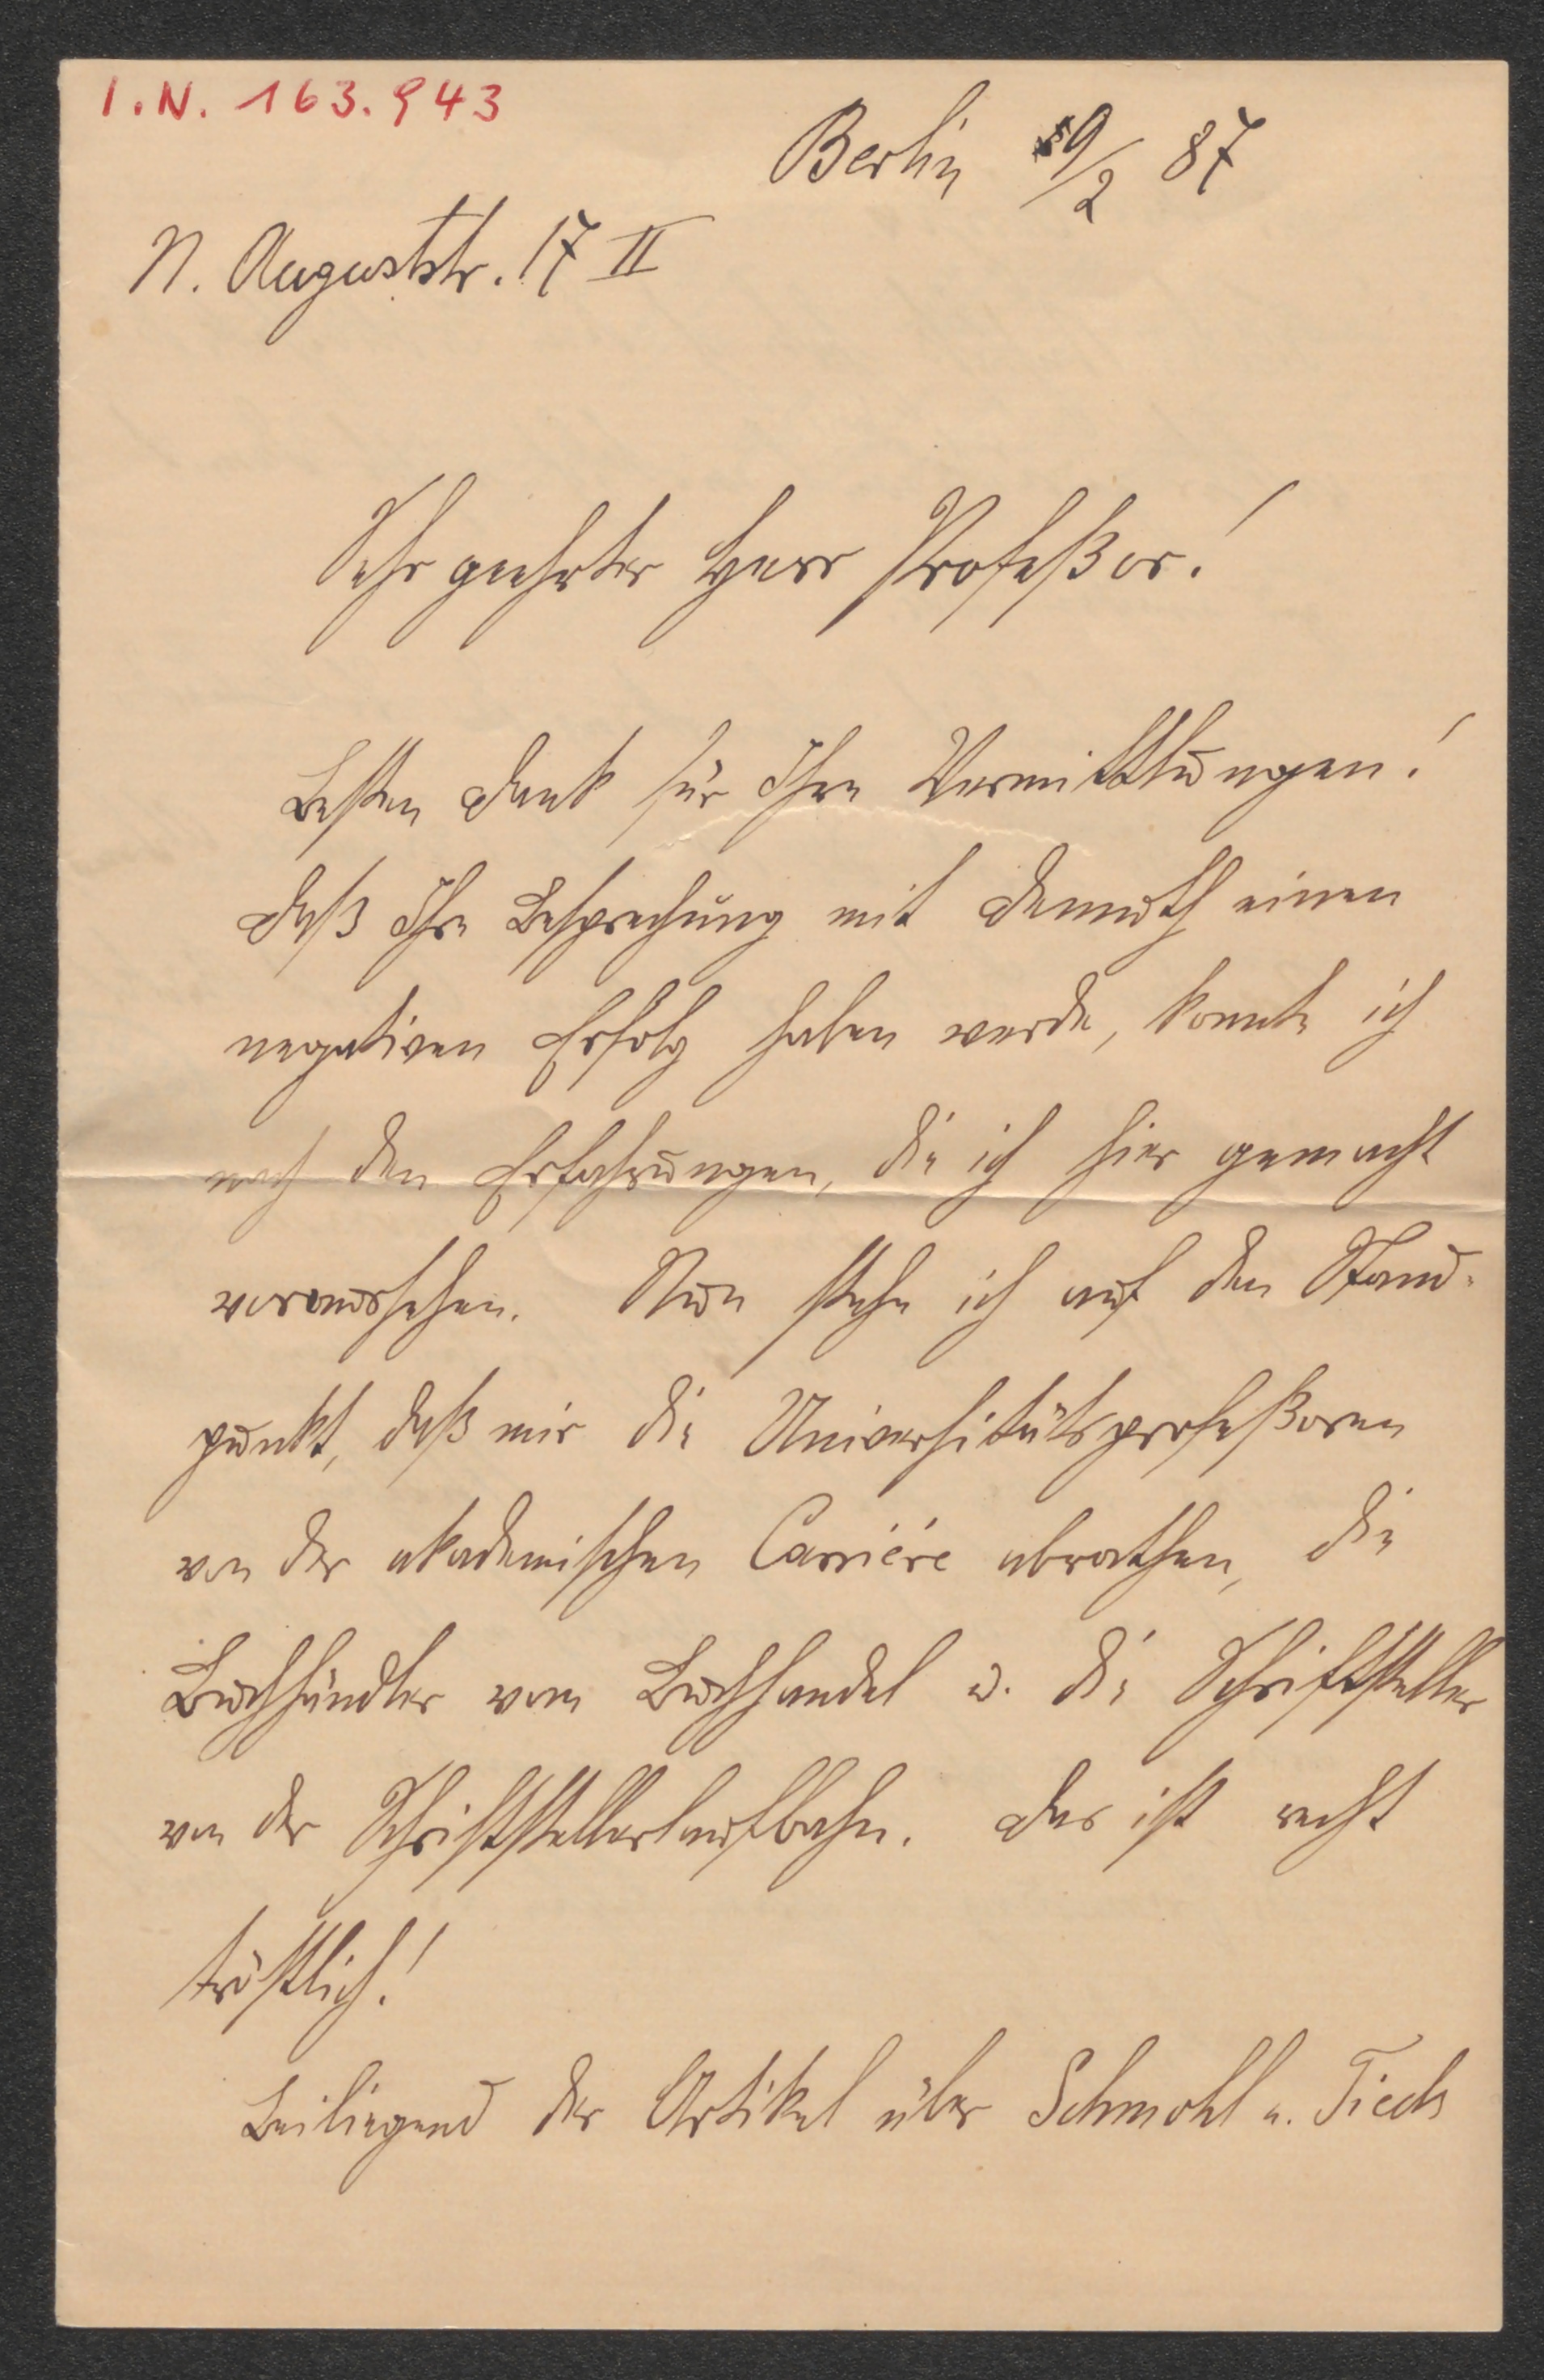 I.N. 163.943
Berlin 9/2 87
N. Auguststr. 17 II
Sehr geehrter Herr Profeßor!
Besten Dank für Ihre Vermittlungen!
Daß Ihre Besprechung mit Demuth einen
negativen Erfolg haben werde, konnte ich
nach den Erfahrungen, die ich hier gemacht
voraussehen. Nun stehe ich auf den Stand-
punkt, daß mir die Universitätsprofeßoren
von der akademischen Carriére abrathen, die
Buchhändler vom Buchhandel u. die Schriftsteller
von der Schriftstellerlaufbahn. Das ist recht
tröstlich!
Beiliegend der Artikel über Schmohl u. Tieck